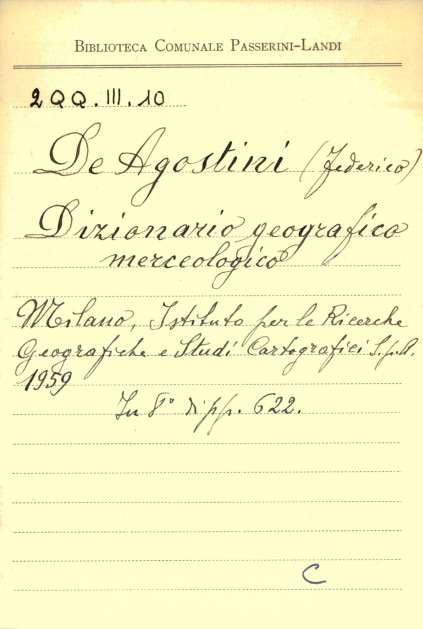 BIBLIOTECA COMUNALE PASSERINI-LANDI
2QQ.III.10
De Agostini (Federico)
Dizionario geografico
merceologico
Milano, Istituto per le Ricerche
Geografiche e Studi Cartografici S.p.A.
1959
In 8° di pp. 622.
C